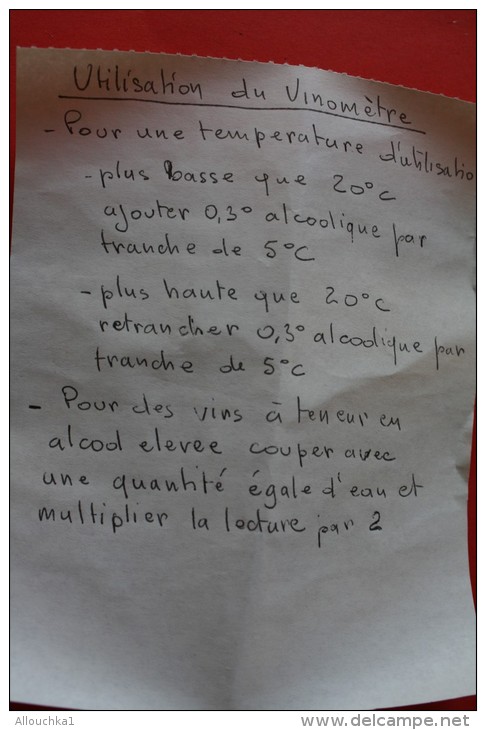 Utilisation du Vinomètre
- Pour une temperature d'utilisatio
- plus basse que 20°C
ajouter 0,3° alcoolique par
tranche de 5°C
- plus haute que 20°C
retrancher 0,3° alcoolique par
tranche de 5°C
- Pour des vins à teneur en
alcool elevee couper avec
une quantité égale d'eau et
multiplier la lecture par 2
Allouchka1
www.delcampe.net